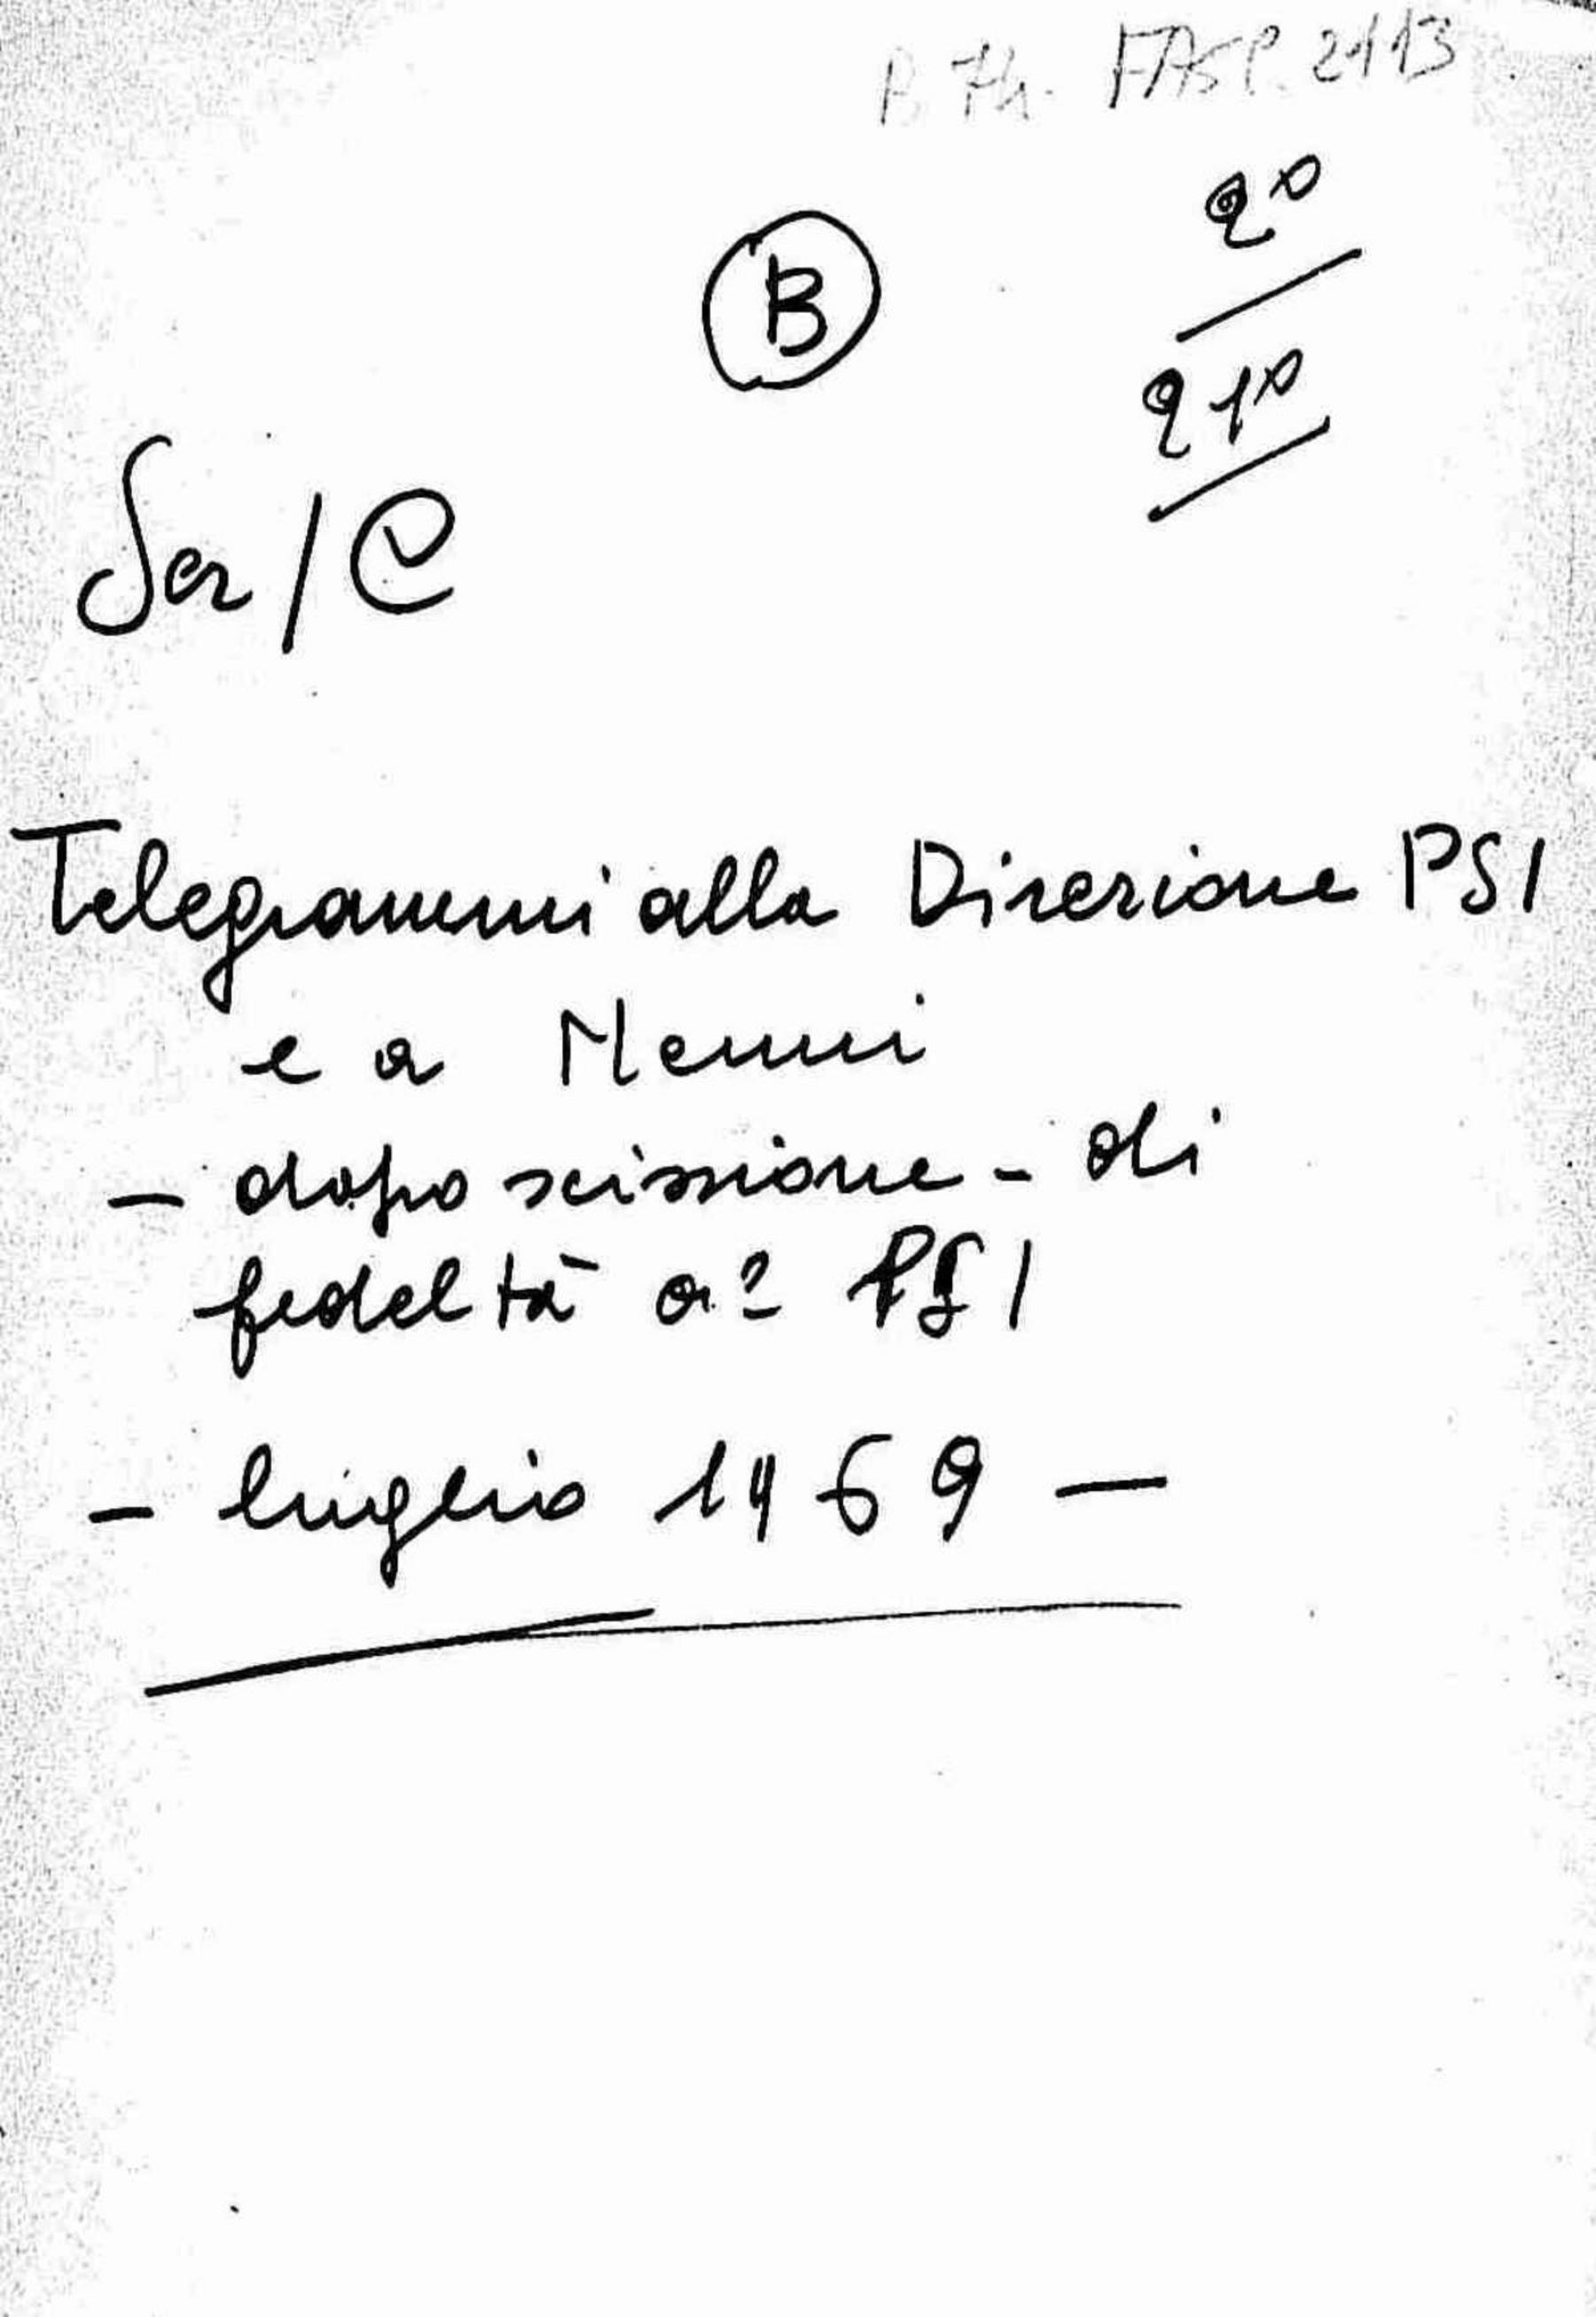 B. 74. FASC. 2113
2°
B
21°
Ser/C
Telegrammi alla Direzione PSI
e a Nenni
- dopo scissione - di
fedeltà al PSI
- luglio 1969 -